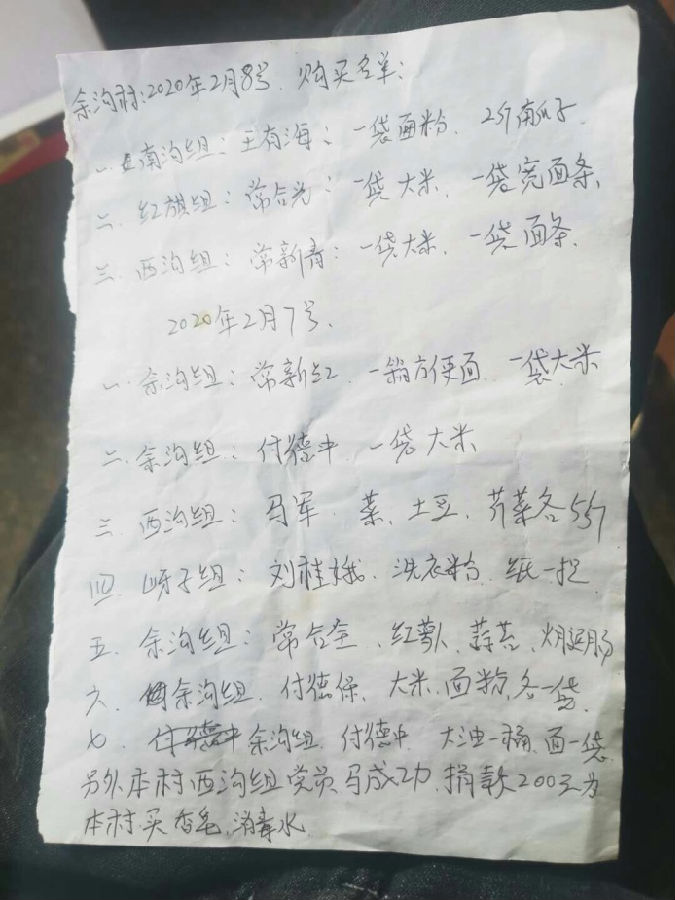 余沟村:2020年2月8号、购买名单:
一、南沟组:王有海:一袋面粉、2斤南瓜子.
二、红旗组:常合为:一袋大米、一袋宽面条、
三、西沟组:常新青:一袋大米、一袋面条.
2020年2月7号、
一、余沟组:常新红、一箱方便面、一袋大米
二、余沟组:付德中、一袋大米
三、西沟组:马军、菜、土豆、芹菜各5斤
四、呀子组:刘桂娥、洗衣粉、纸一提
五、余沟组:常合全、红萝卜、蒜苔、火腿肠
六、余沟组、付德保、大米、面粉、各一袋、
七、余沟组、付德中、大油一桶、面一袋
另外本村西沟组党员马成功、捐款200元为
本村买香皂、消毒水.